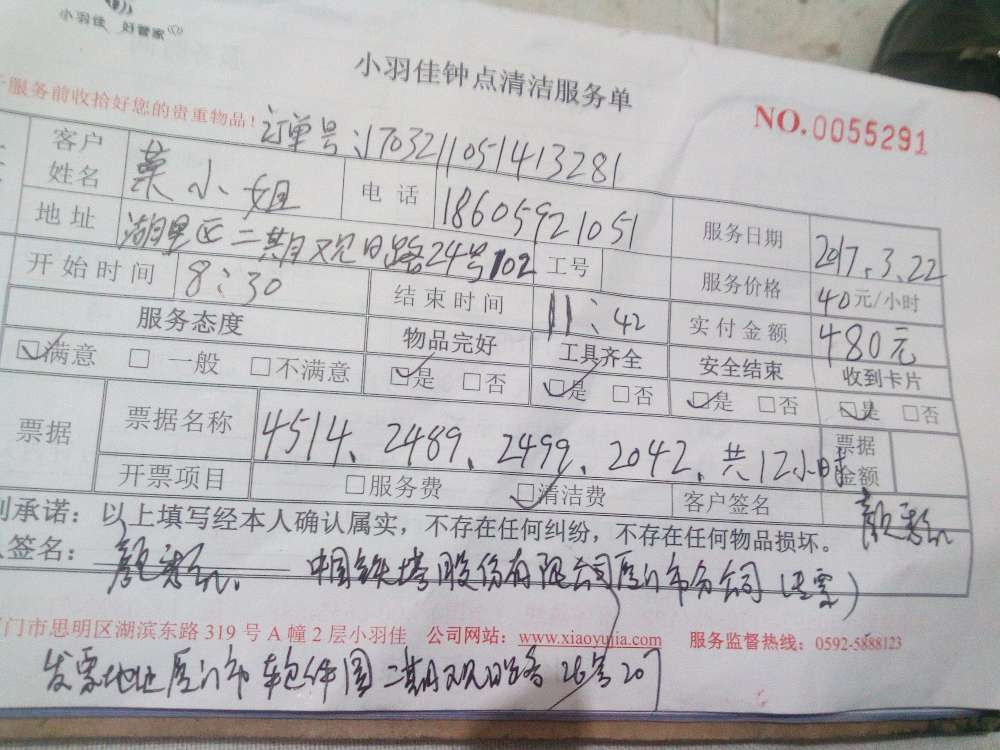 小羽佳 好管家
小羽佳钟点清洁服务单
服务前收拾好您的贵重物品!
NO.0055291
订单号:170321105141328​1
客户姓名 菜小姐 电话 18605921051 服务日期 2017.3.22
地址 湖里区二期观日路24号102 工号 服务价格 40元/小时
开始时间 8:30 结束时间 11:42 实付金额 480元
服务态度 物品完好 工具齐全 安全结束 收到卡片
☑满意 □一般 □不满意 ☑是 □否 ☑是 □否 ☑是 □否 ☑是 □否
票据 票据名称 4514、2489、2499、2042、共12小时 票据金额
开票项目 □服务费 ☑清洁费 客户签名
承诺:以上填写经本人确认属实,不存在任何纠纷,不存在任何物品损坏。
签名: 中国铁塔股份有限公司厦门市分公司
门市思明区湖滨东路 319 号 A 幢 2 层小羽佳 公司网站:www.xiaoyujia.com 服务监督热线:0592-5888123
发票地址厦门市软件园二期观日路26号207